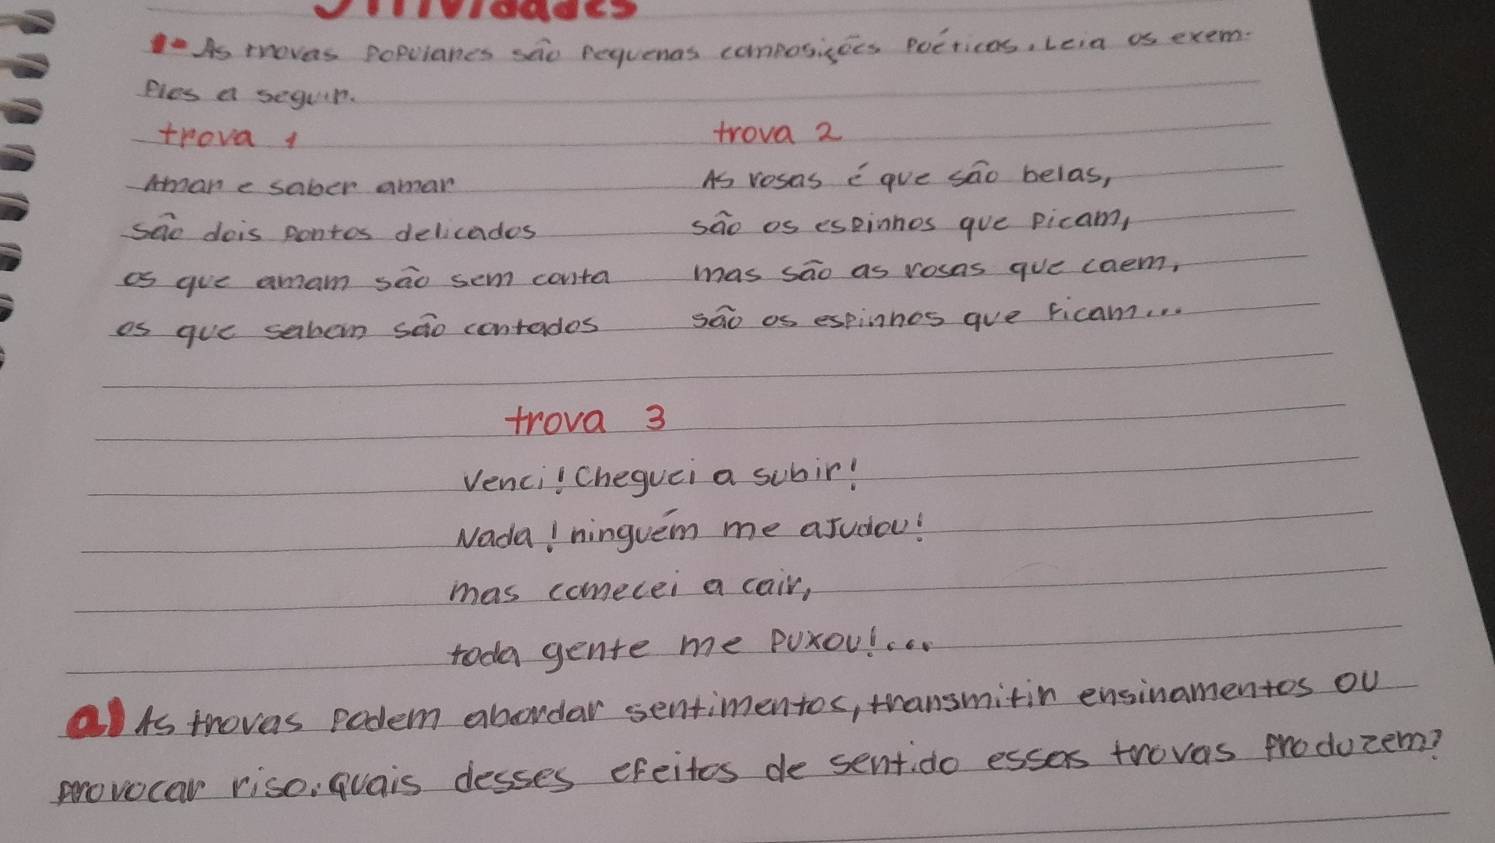 Atividades
1- As trovas populares são pequenas composições poéticas. Leia os exem-
plos a seguir.
trova 1
Amar e saber amar
são dois pontos delicados
os que amam são sem conta
os que sabem são contados
trova 2
As rosas é que são belas,
são os espinhos que picam,
mas são as rosas que caem,
são os espinhos que ficam...
trova 3
Venci! Cheguei a subir!
Nada! ninguém me ajudou!
mas comecei a cair,
toda gente me puxou!...
a) As trovas podem abordar sentimentos, transmitir ensinamentos ou
provocar riso. Quais desses efeitos de sentido essas trovas produzem?